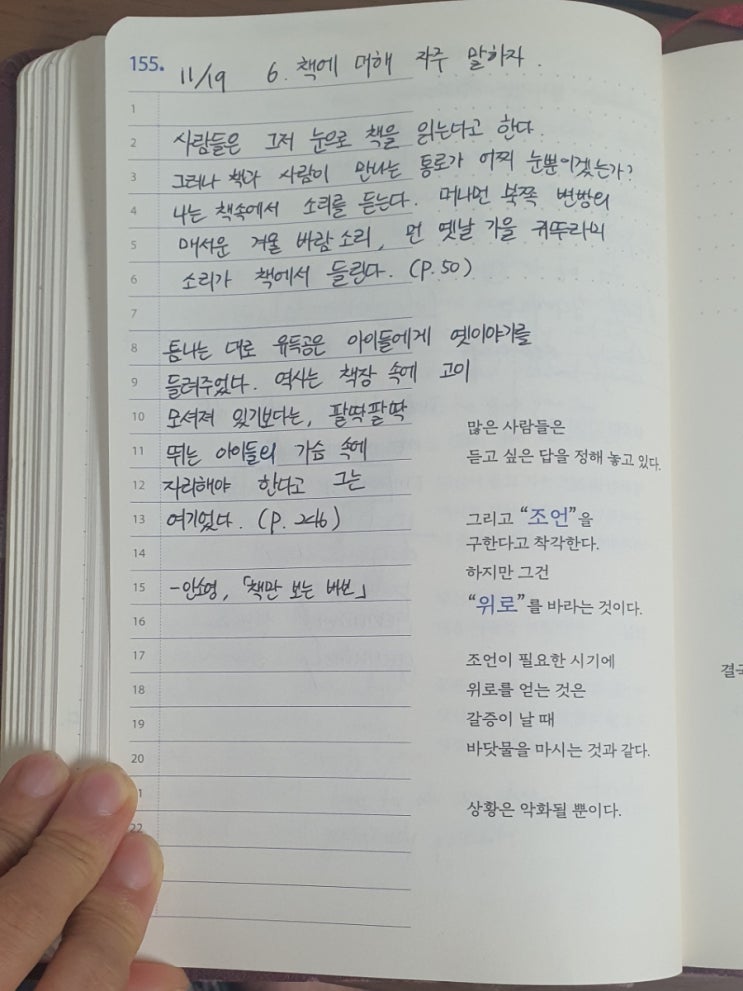 155.
11/19 6. 책에 대해 자주 말하자.
1
2 사람들은 그저 눈으로 책을 읽는다고 한다.
3 그러나 책과 사람이 만나는 통로가 어찌 눈뿐이겠는가?
4 나는 책속에서 소리를 듣는다. 머나먼 북쪽 변방의
5 매서운 겨울 바람 소리, 먼 옛날 가을 귀뚜라미
6 소리가 책에서 들린다. (P.50)
7
8 틈나는 대로 유득공은 아이들에게 옛이야기를
9 들려주었다. 역사는 책장 속에 고이
10 모셔져 있기보다는, 팔딱팔딱
11 뛰는 아이들의 가슴 속에
12 자리해야 한다고 그는
13 여기었다. (P. 246)
14
15 -안소영, 「책만 보는 바보」
16
17
18
19
20
22
많은 사람들은
듣고 싶은 답을 정해 놓고 있다.
그리고 “조언”을
구한다고 착각한다.
하지만 그건
“위로”를 바라는 것이다.
조언이 필요한 시기에
위로를 얻는 것은
갈증이 날 때
바닷물을 마시는 것과 같다.
상황은 악화될 뿐이다.